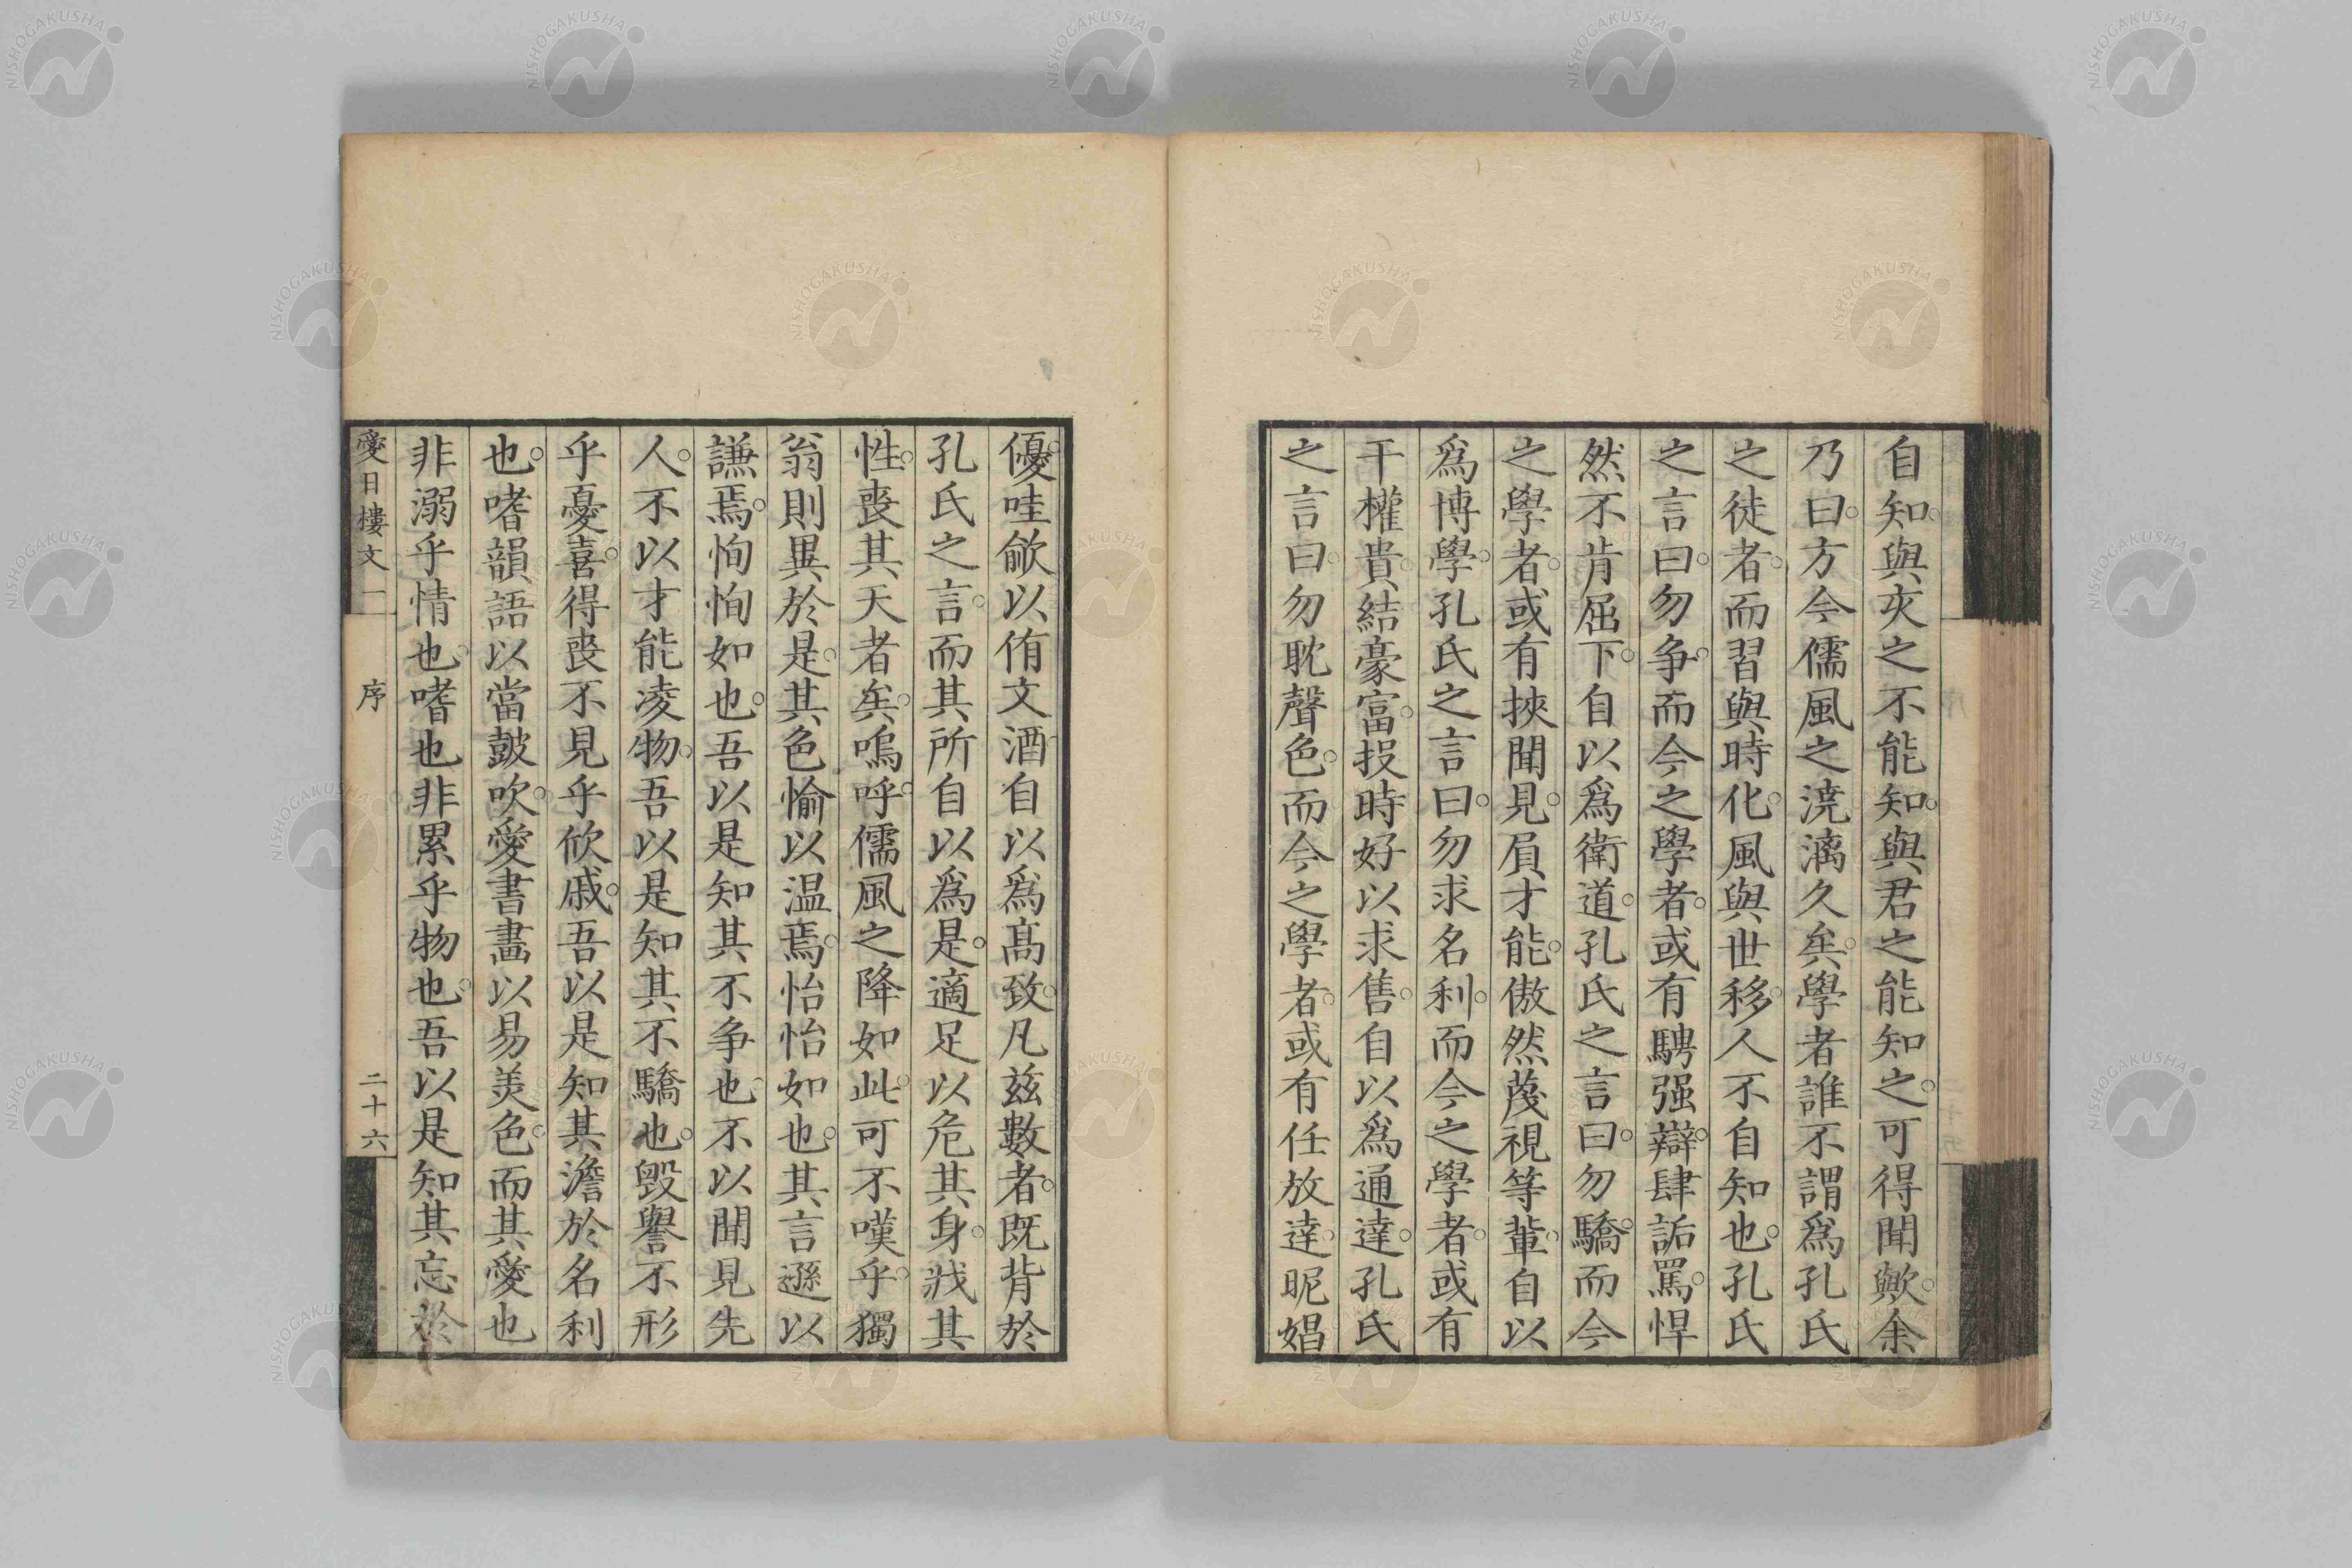 自知。與夾之不能知。與君之能知之。可得聞歟。余
乃曰。方今儒風之澆漓久矣。學者誰不謂爲孔氏
之徒者。而習與時化。風與世移。人不自知也。孔氏
之言曰。勿争。而今之學者。或有騁强辯。肆詬罵。悍
然不肯屈下。自以爲衛道。孔氏之言曰。勿驕。而今
之學者。或有挾聞見。眉才能。傲然蔑視等輩。自以
爲博學。孔氏之言曰。勿求名利。而今之學者。或有
干權貴。結豪富。投時好以求售。自以爲通達。孔氏
之言曰。勿耽聲色。而今之學者。或有任放達。昵娼
優。哇歈以侑文酒。自以爲髙致。凡兹數者。既背於
孔氏之言。而其所自以爲是。適足以危其身。戕其
性。喪其天者矣。嗚呼。儒風之降如此。可不嘆乎。獨
翁則異於是。其色愉以温焉。怡怡如也。其言遜以
謙焉。恂恂如也。吾以是知其不争也。不以聞見先
人。不以才能凌物。吾以是知其不驕也。毁譽不形
乎憂喜。得喪不見乎欣戚。吾以是知其澹於名利
也。嗜韻語以當鼓吹。愛書畵以易美色。而其愛也
非溺乎情也。嗜也非累乎物也。吾以是知其忘於
愛日樓文一 序 二十六
NISHOGAKUSHA